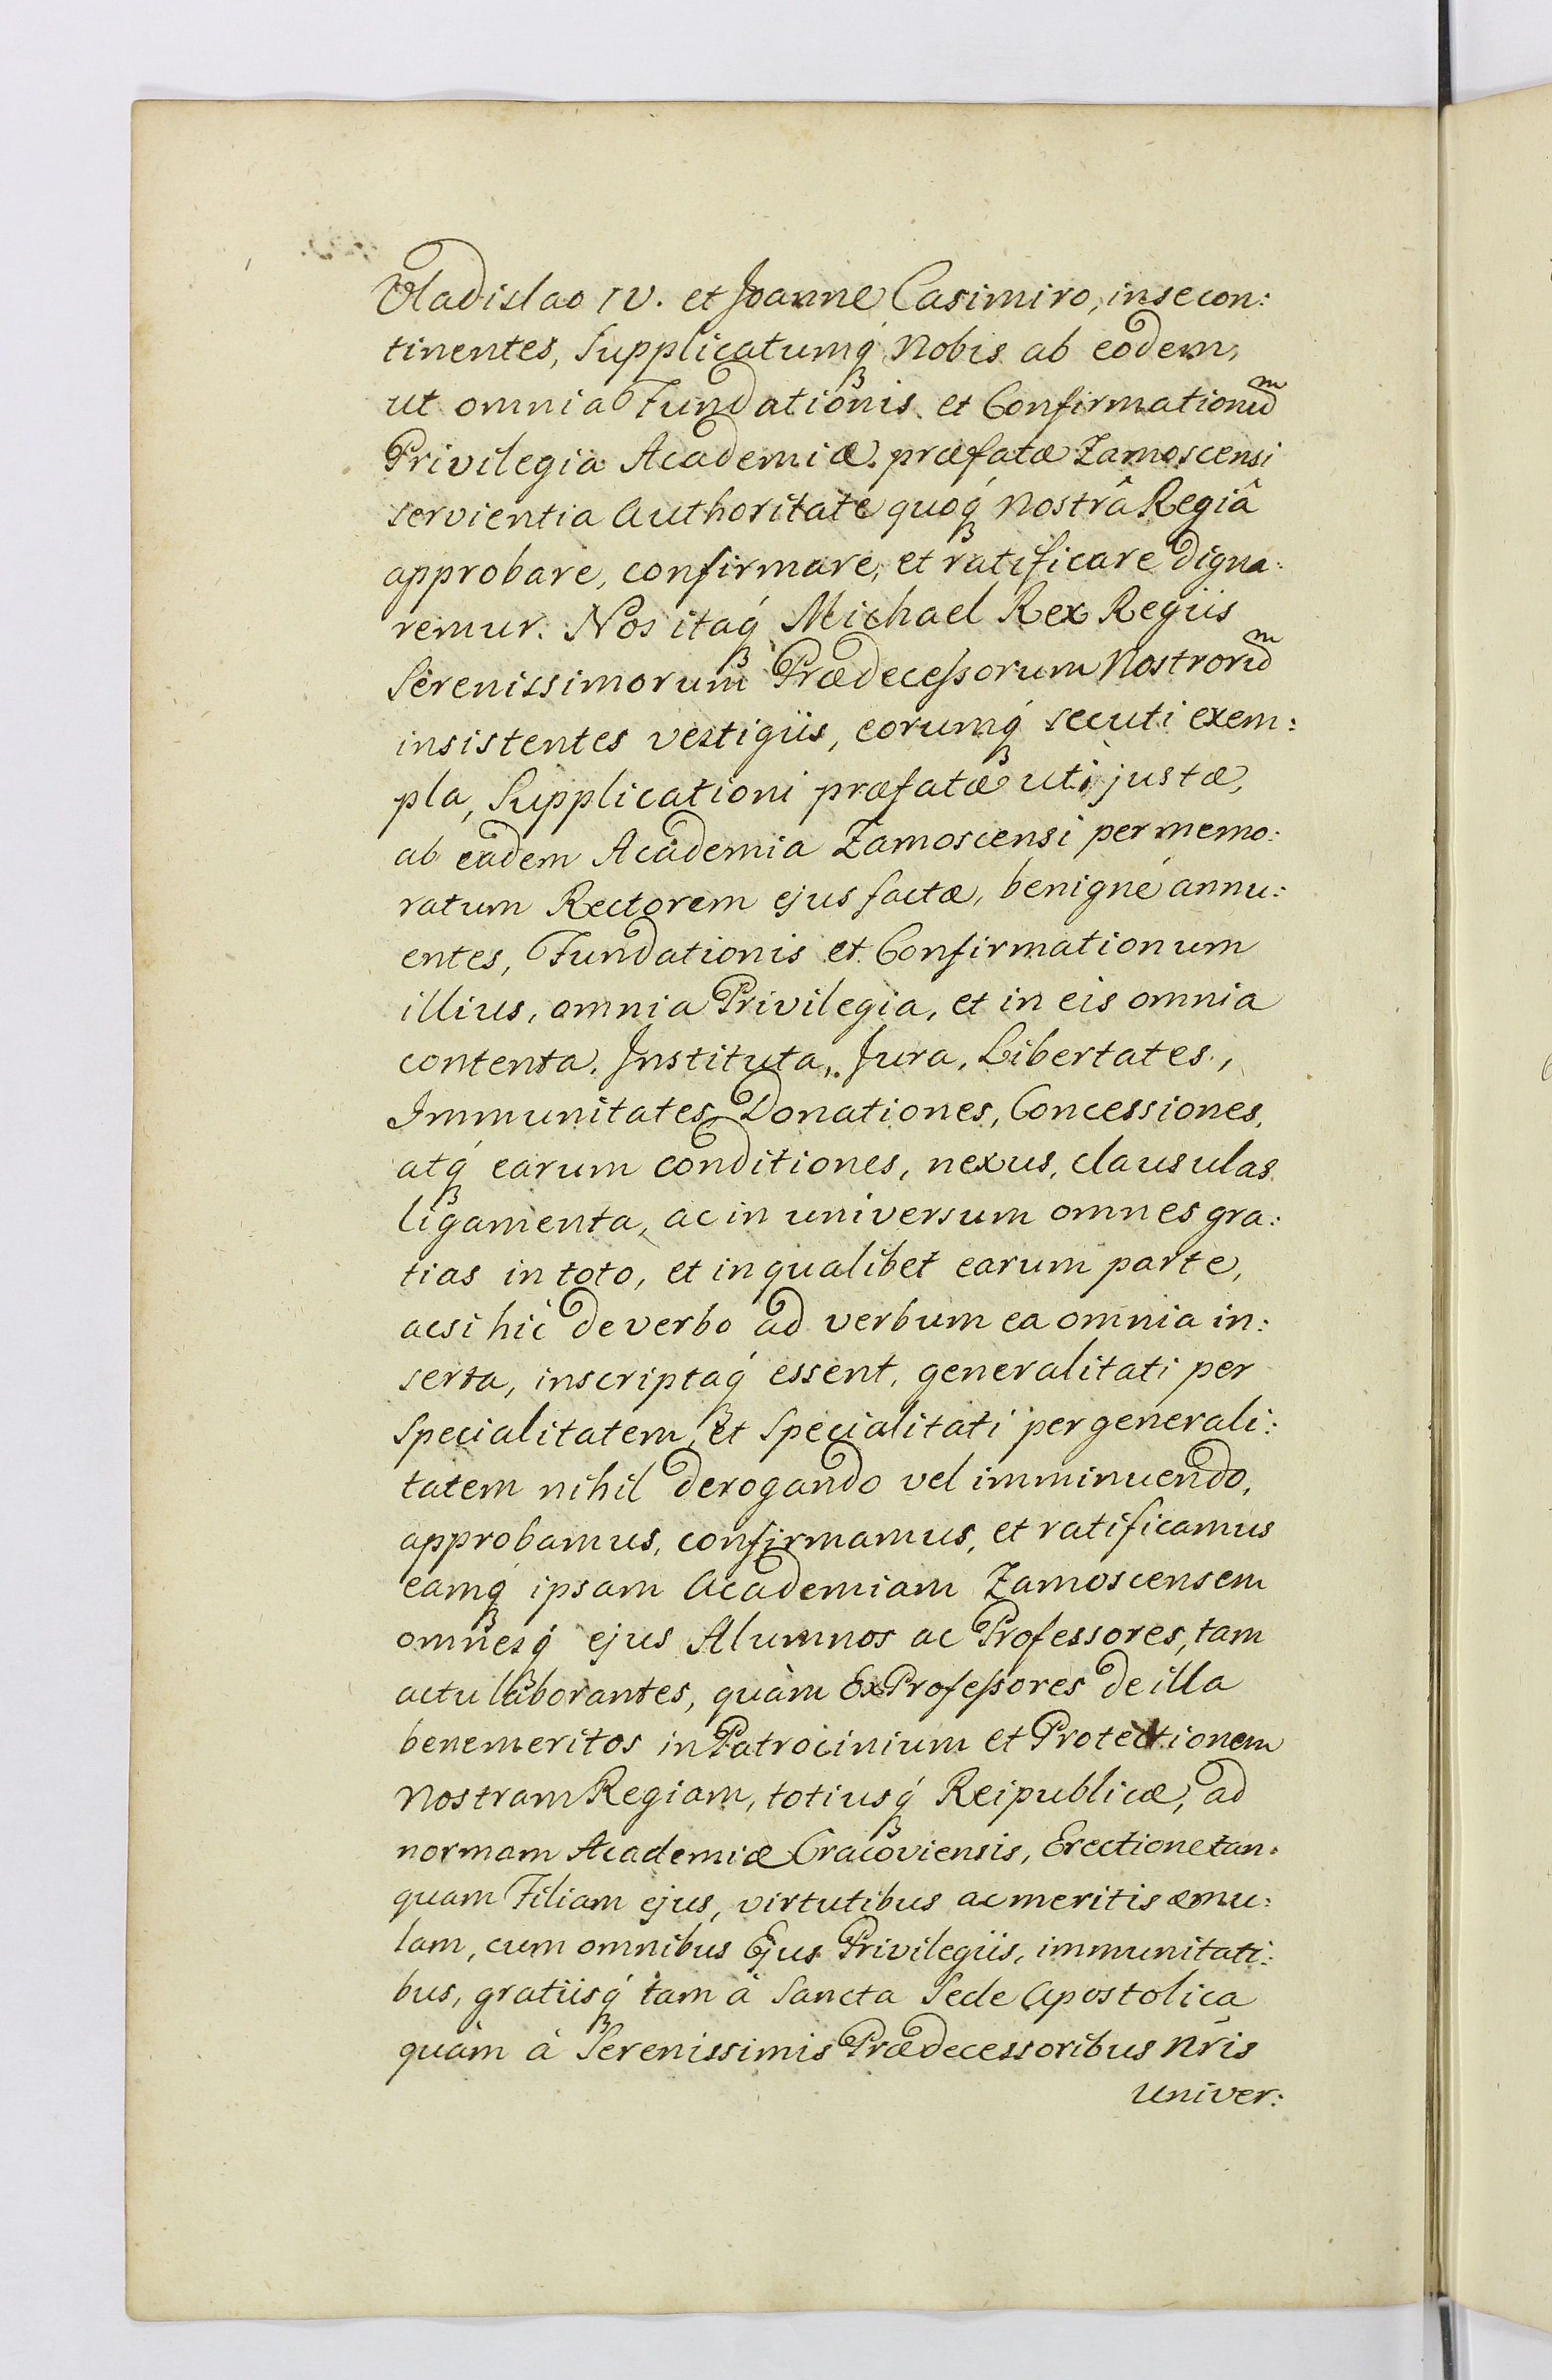 Vladislao IV. et Joanne Casimiro, in se con:
tinentes, Supplicatumq́ꝫ Nobis ab eodem,
ut omnia Fundationis et Confirmationuͫ
Privilegia Academiæ præfatæ Zamoscensi
servientia Authoritate quoq́ꝫ Nostrâ Regiâ
approbare, confirmare, et ratificare digna:
remur. Nos itaq́ꝫ Michael Rex Regiis
Serenissimorum Prædecessorum Nostroruͫ
insistentes vestigiis, eorumq́ꝫ secuti exem:
pla, Supplicationi præfatæ uti justæ,
ab eâdem Academia Zamoscensi per memo:
ratum Rectorem ejus factæ, benigné annu:
entes, Fundationis et Confirmationum
illius, omnia Privilegia, et in eis omnia
contenta, Instituta, Jura, Libertates,
Immunitates, Donationes, Concessiones,
atq́ꝫ earum conditiones, nexus, clausulas
ligamenta, ac in universum omnes gra:
tias in toto, et in qualibet earum parte,
acsi hîc de verbo ad verbum ea omnia in:
serta, inscriptaq́ꝫ essent, generalitati per
Specialitatem, et Specialitati per generali:
tatem nihil derogando vel imminuendo,
approbamus, confirmamus, et ratificamus
eamq́ꝫ ipsam Academiam Zamoscensem
omnesq́ꝫ ejus Alumnos ac Professores, tam
actu laborantes, quàm ExProfessores de illa
benemeritos in Patrocinium et Protectionem
Nostram Regiam, totiusq́ꝫ Reipublicæ, ad
normam Academiæ Cracoviensis, Erectione tan:
quam Filiam ejus, virtutibus ac meritis æmu:
lam, cum omnibus Ejus Privilegiis, immunitati:
bus, gratiisq́ꝫ tam à Sancta Sede Apostolica
quàm à Serenissimis Prædecessoribus Nr̃is
Univer: